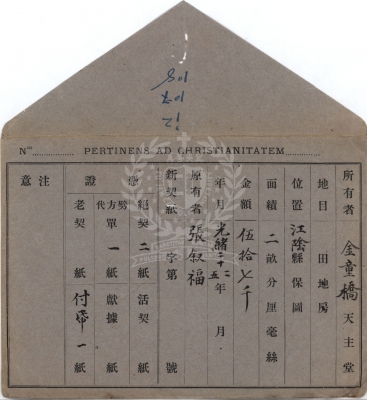 12
10 7
108
Nᵘˢ ............ PERTINENS AD CHRISTIANITATEM ............
所有者 金童橋 天主堂
地目 田地房
位置 江陰縣保圖
面績 二畝分厘毫絲
金額 伍拾七千
年月 光緒二十二五年 月
原有者 張叙福
新契紙 字第 號
繳證
絕契 二紙 活契 紙
代劈方單 一紙 獻據 紙
老契 紙 付帶一紙
注意